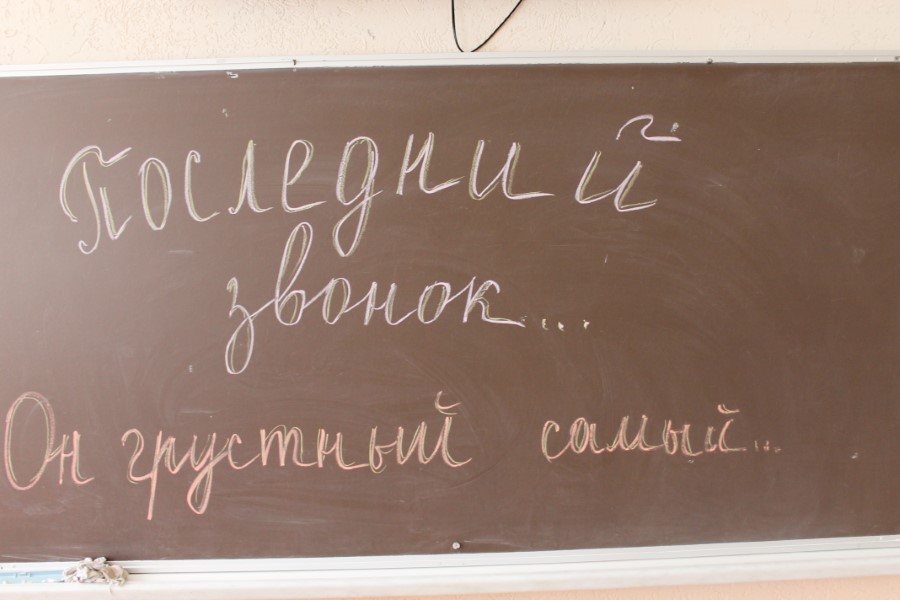 Последний
звонок...
Он грустный самый...